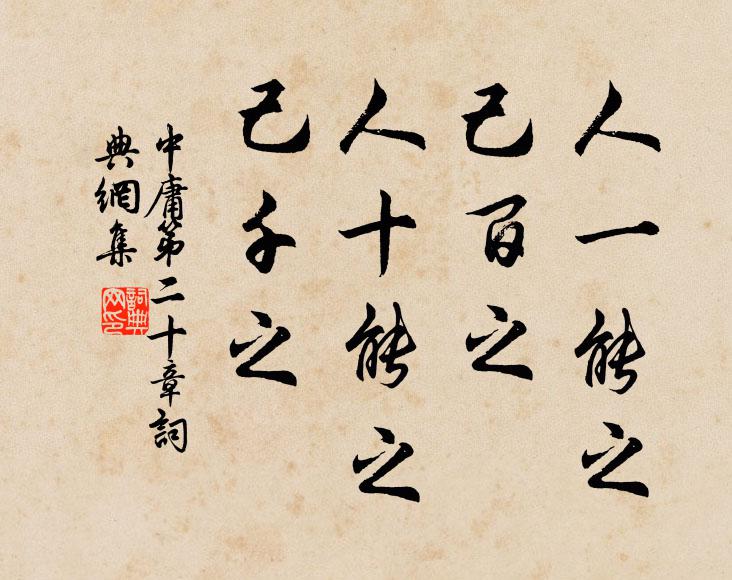 人一能之
己百之
人十能之
己千之
中庸第二十章詞
典網集
詞典
网印